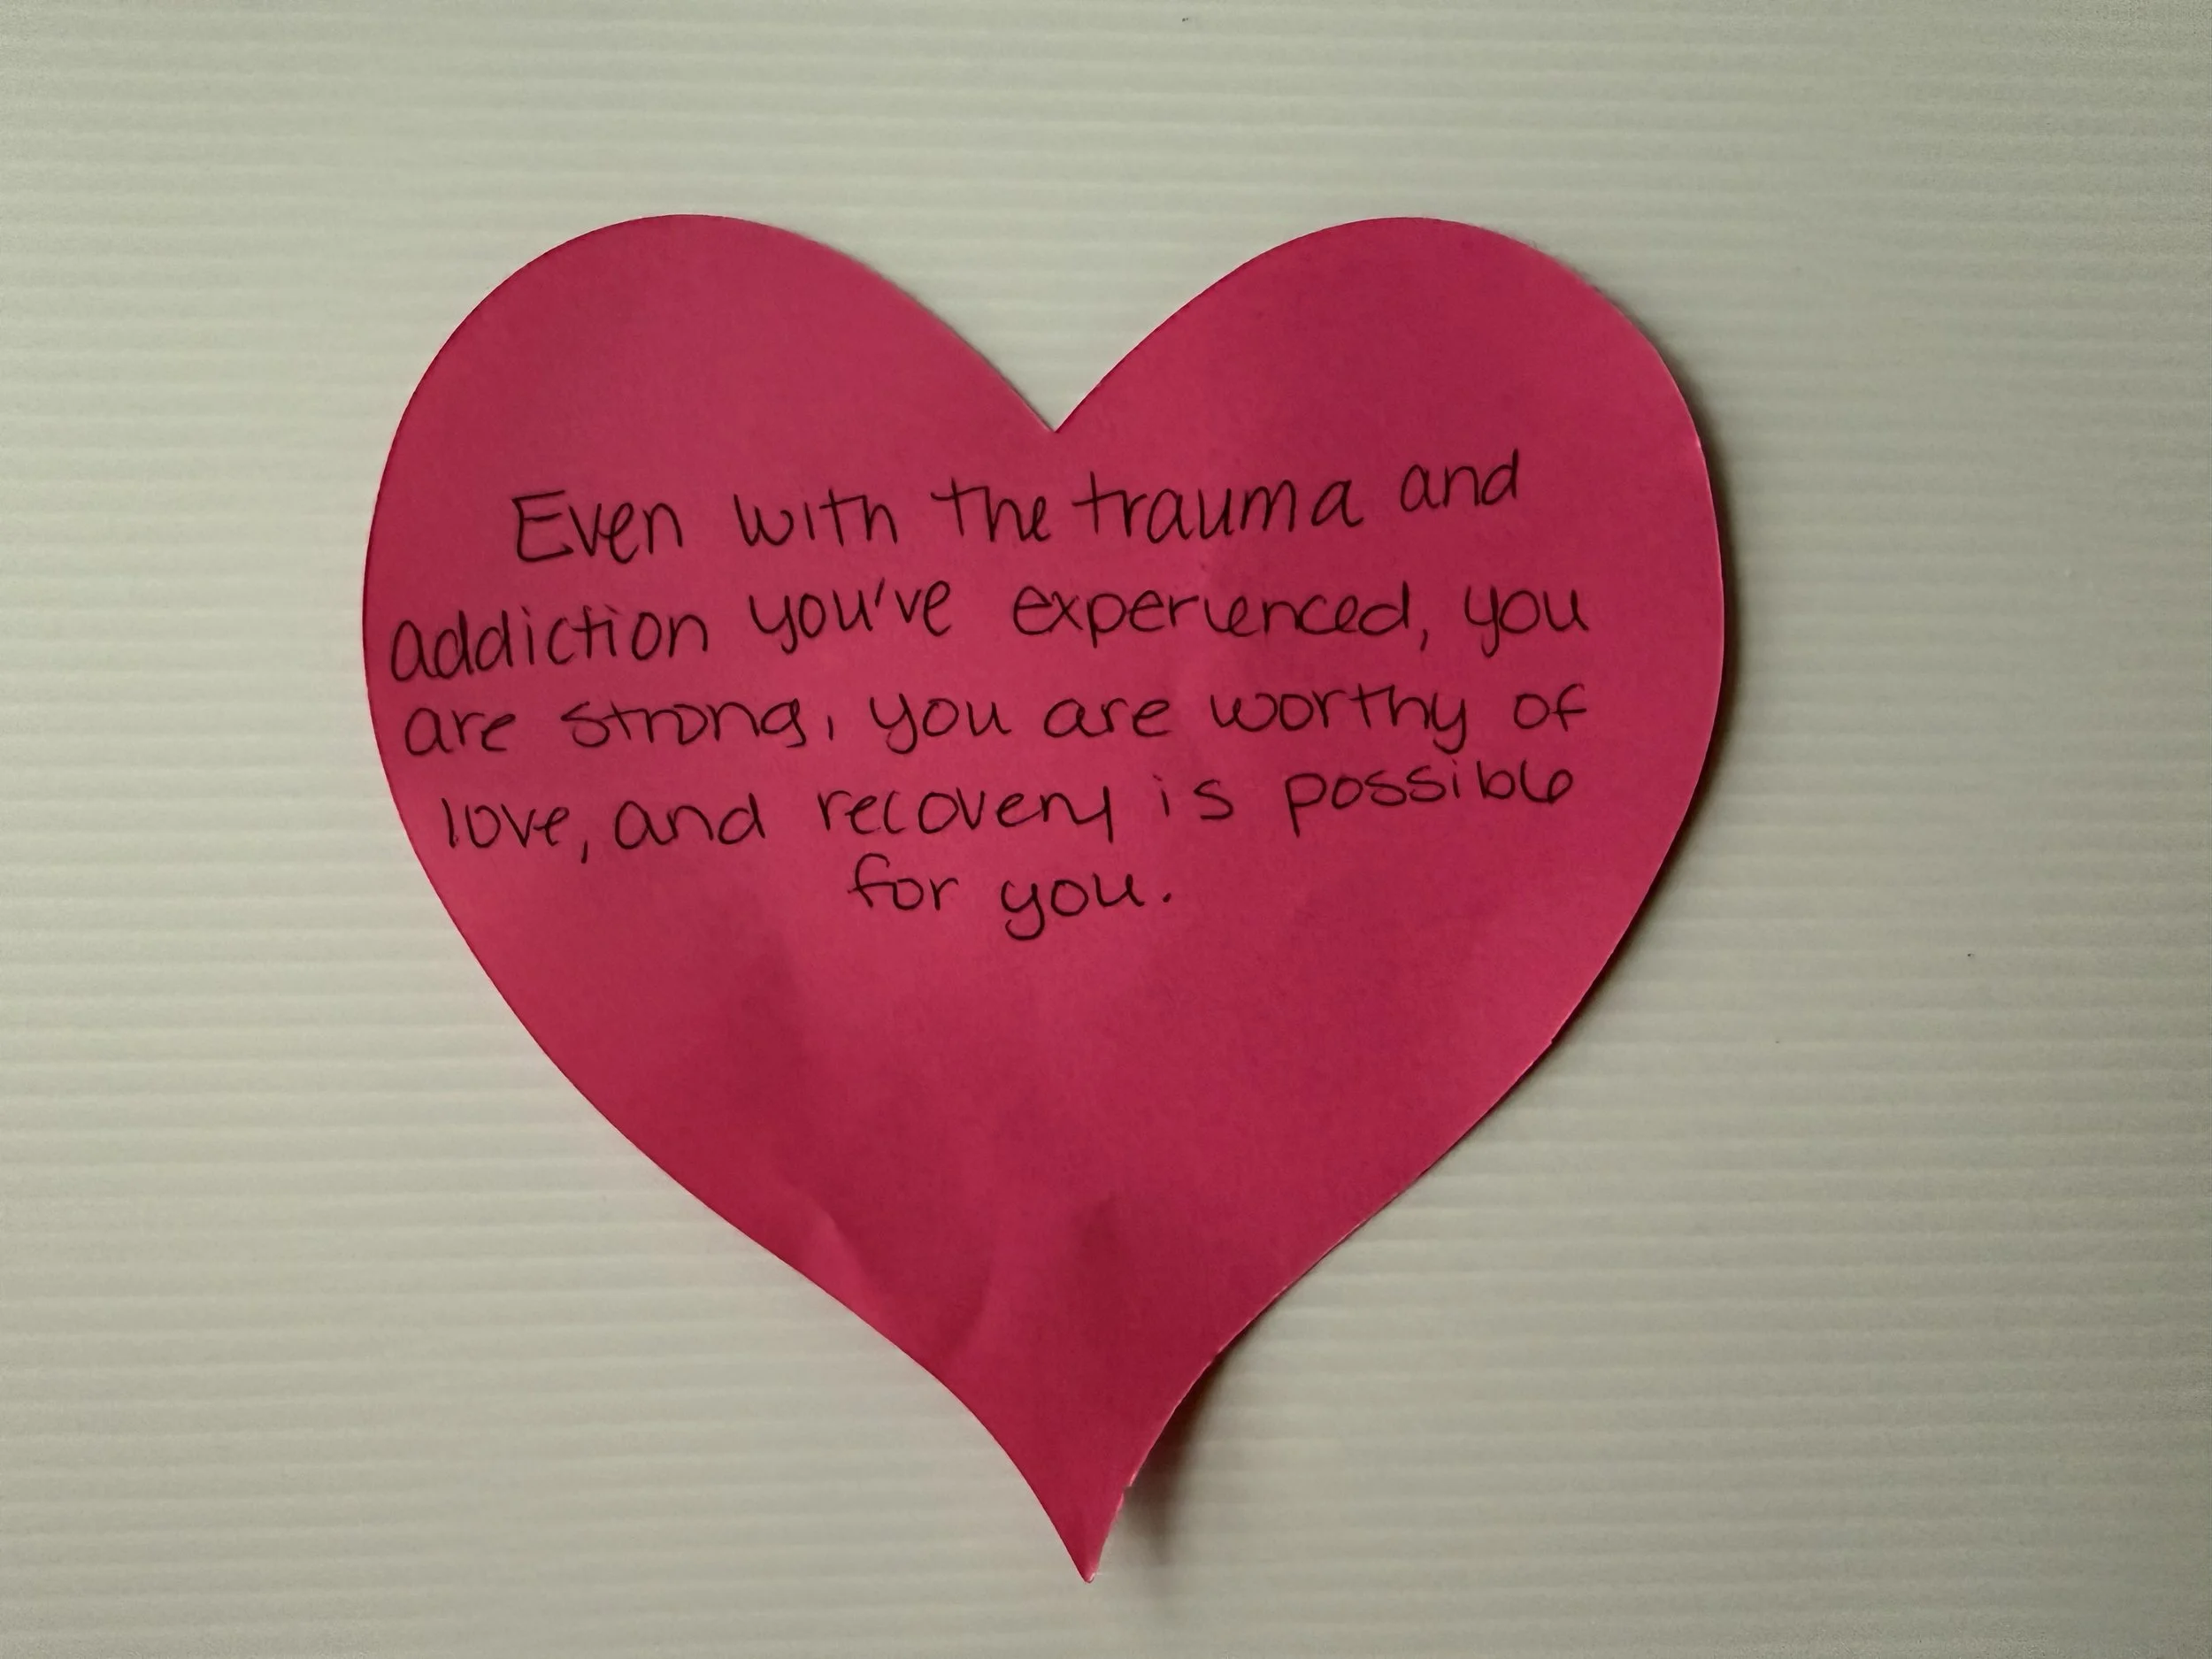 Even with the trauma and
addiction you've experienced, you
are strong, you are worthy of
love, and recovery is possible
for you.